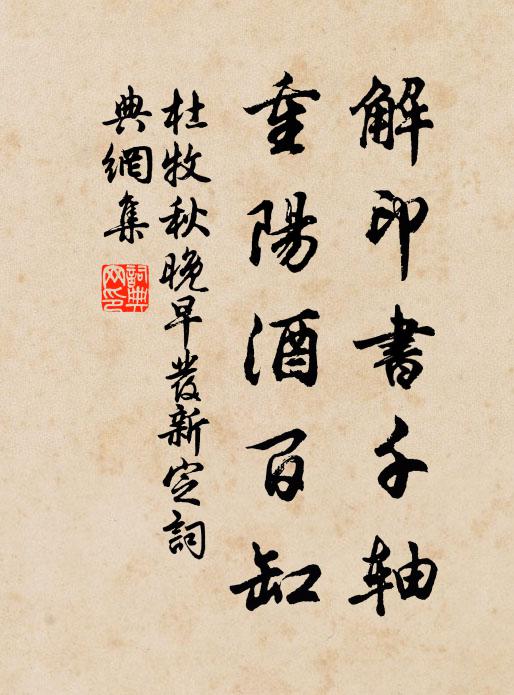 解印書千軸
重陽酒百缸
杜牧秋晚早發新定詞
典網集
詞典
网印